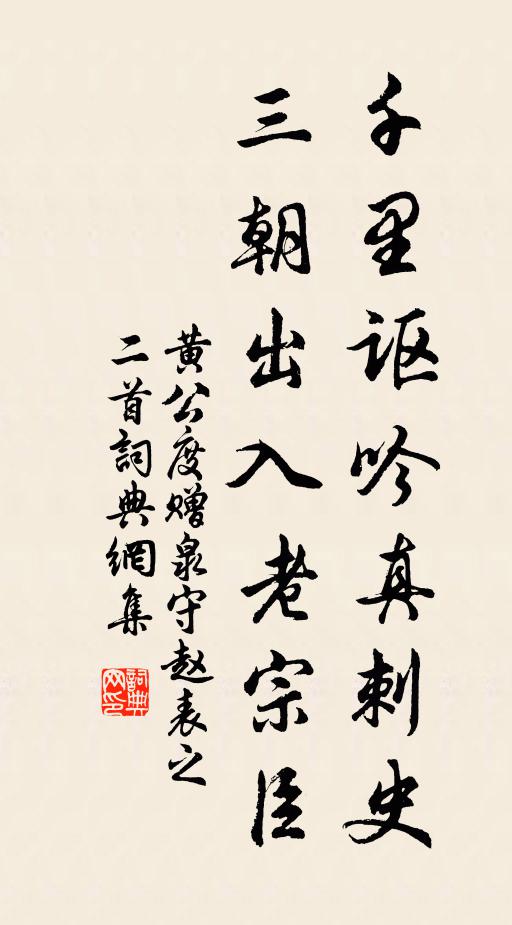 千里讴吟真刺史
三朝出入老宗臣
黄公度赠泉守赵表之
二首詞典網集
詞典网印